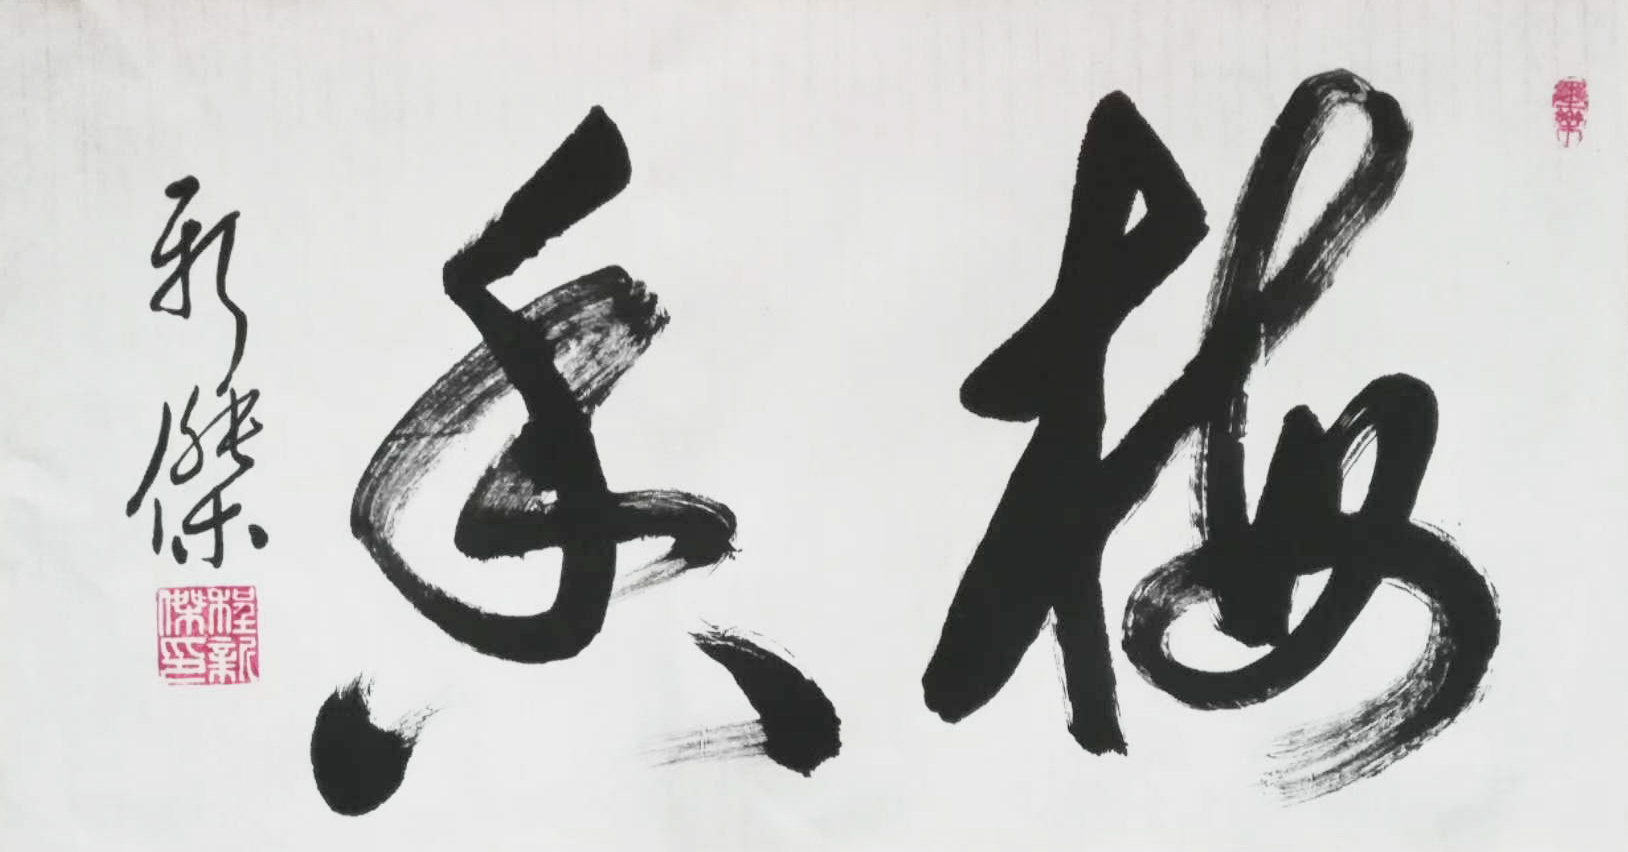 梅香
新傑
程新傑印